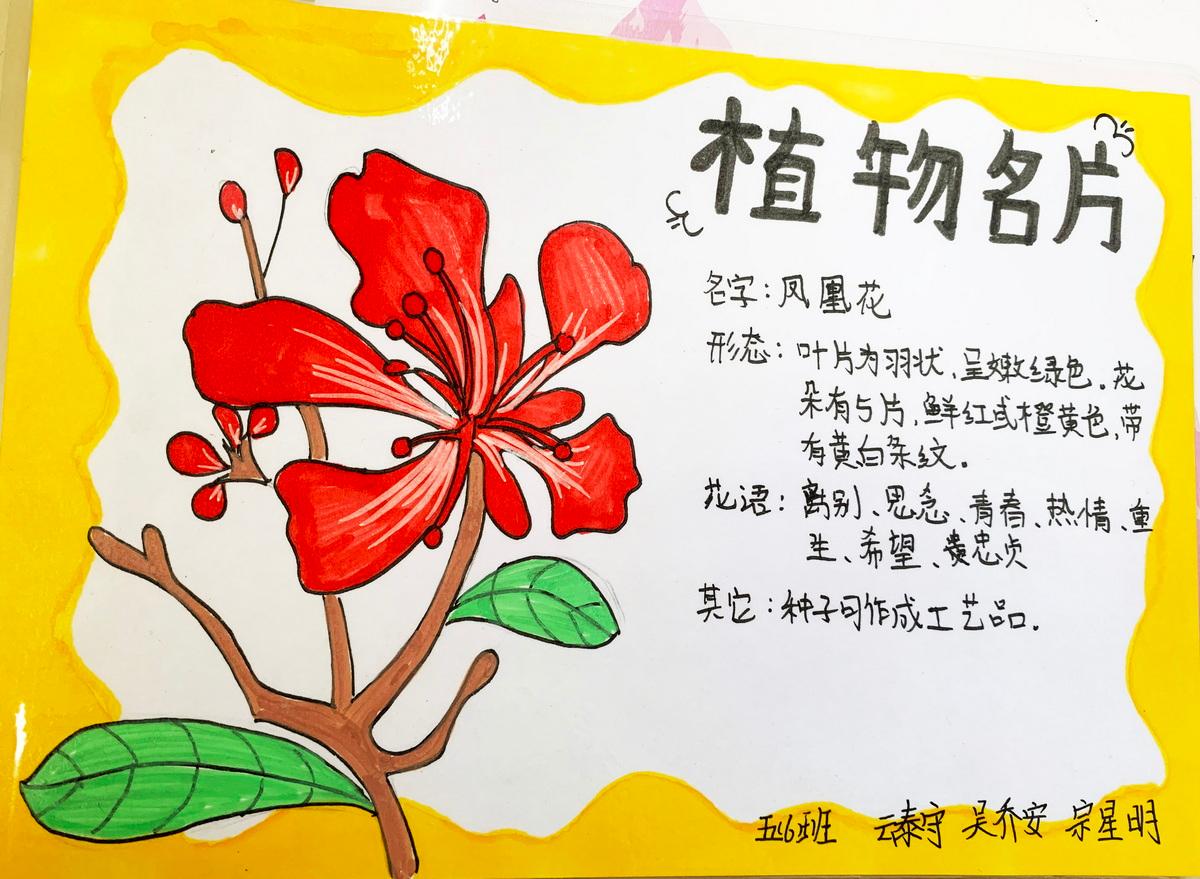 植物名片
名字：凤凰花
形态：叶片为羽状、呈嫩绿色。花
朵有5片，鲜红或橙黄色，带
有黄白条纹。
花语：离别、思念、青春、热情、重
生、希望、贵忠贞
其它：种子可作成工艺品.
五(6)班 云泰守 吴乔安 宗星明